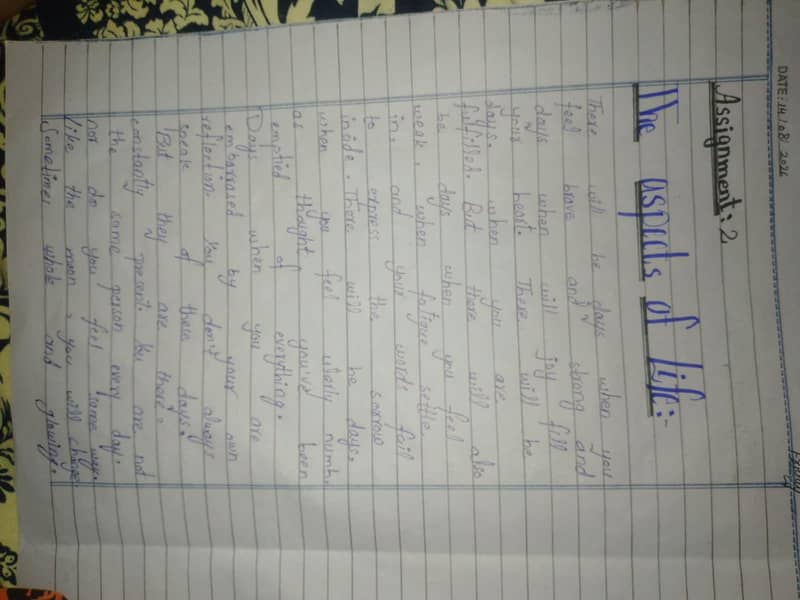 DATE: 14/08/2026
Assignment: 2
The aspects of Life:-
There will be days when you
feel brave and strong and
days when will joy fill
your heart. There will be
days. when you are
fulfilled. But there will also
be days when you feel
weak, when fatigue settle
in, and your words fail
to express the sorrow
inside. There will be days.
when you feel utterly numb,
as thought you've been
emptied of everything.
Days when you are
embarrased by your own
reflection. You don't always
speak of these days.
But they are there,
constantly present. You are not
the same person every day.
nor do you feel same way.
like the moon, you will change.
Sometimes whole and glowing.